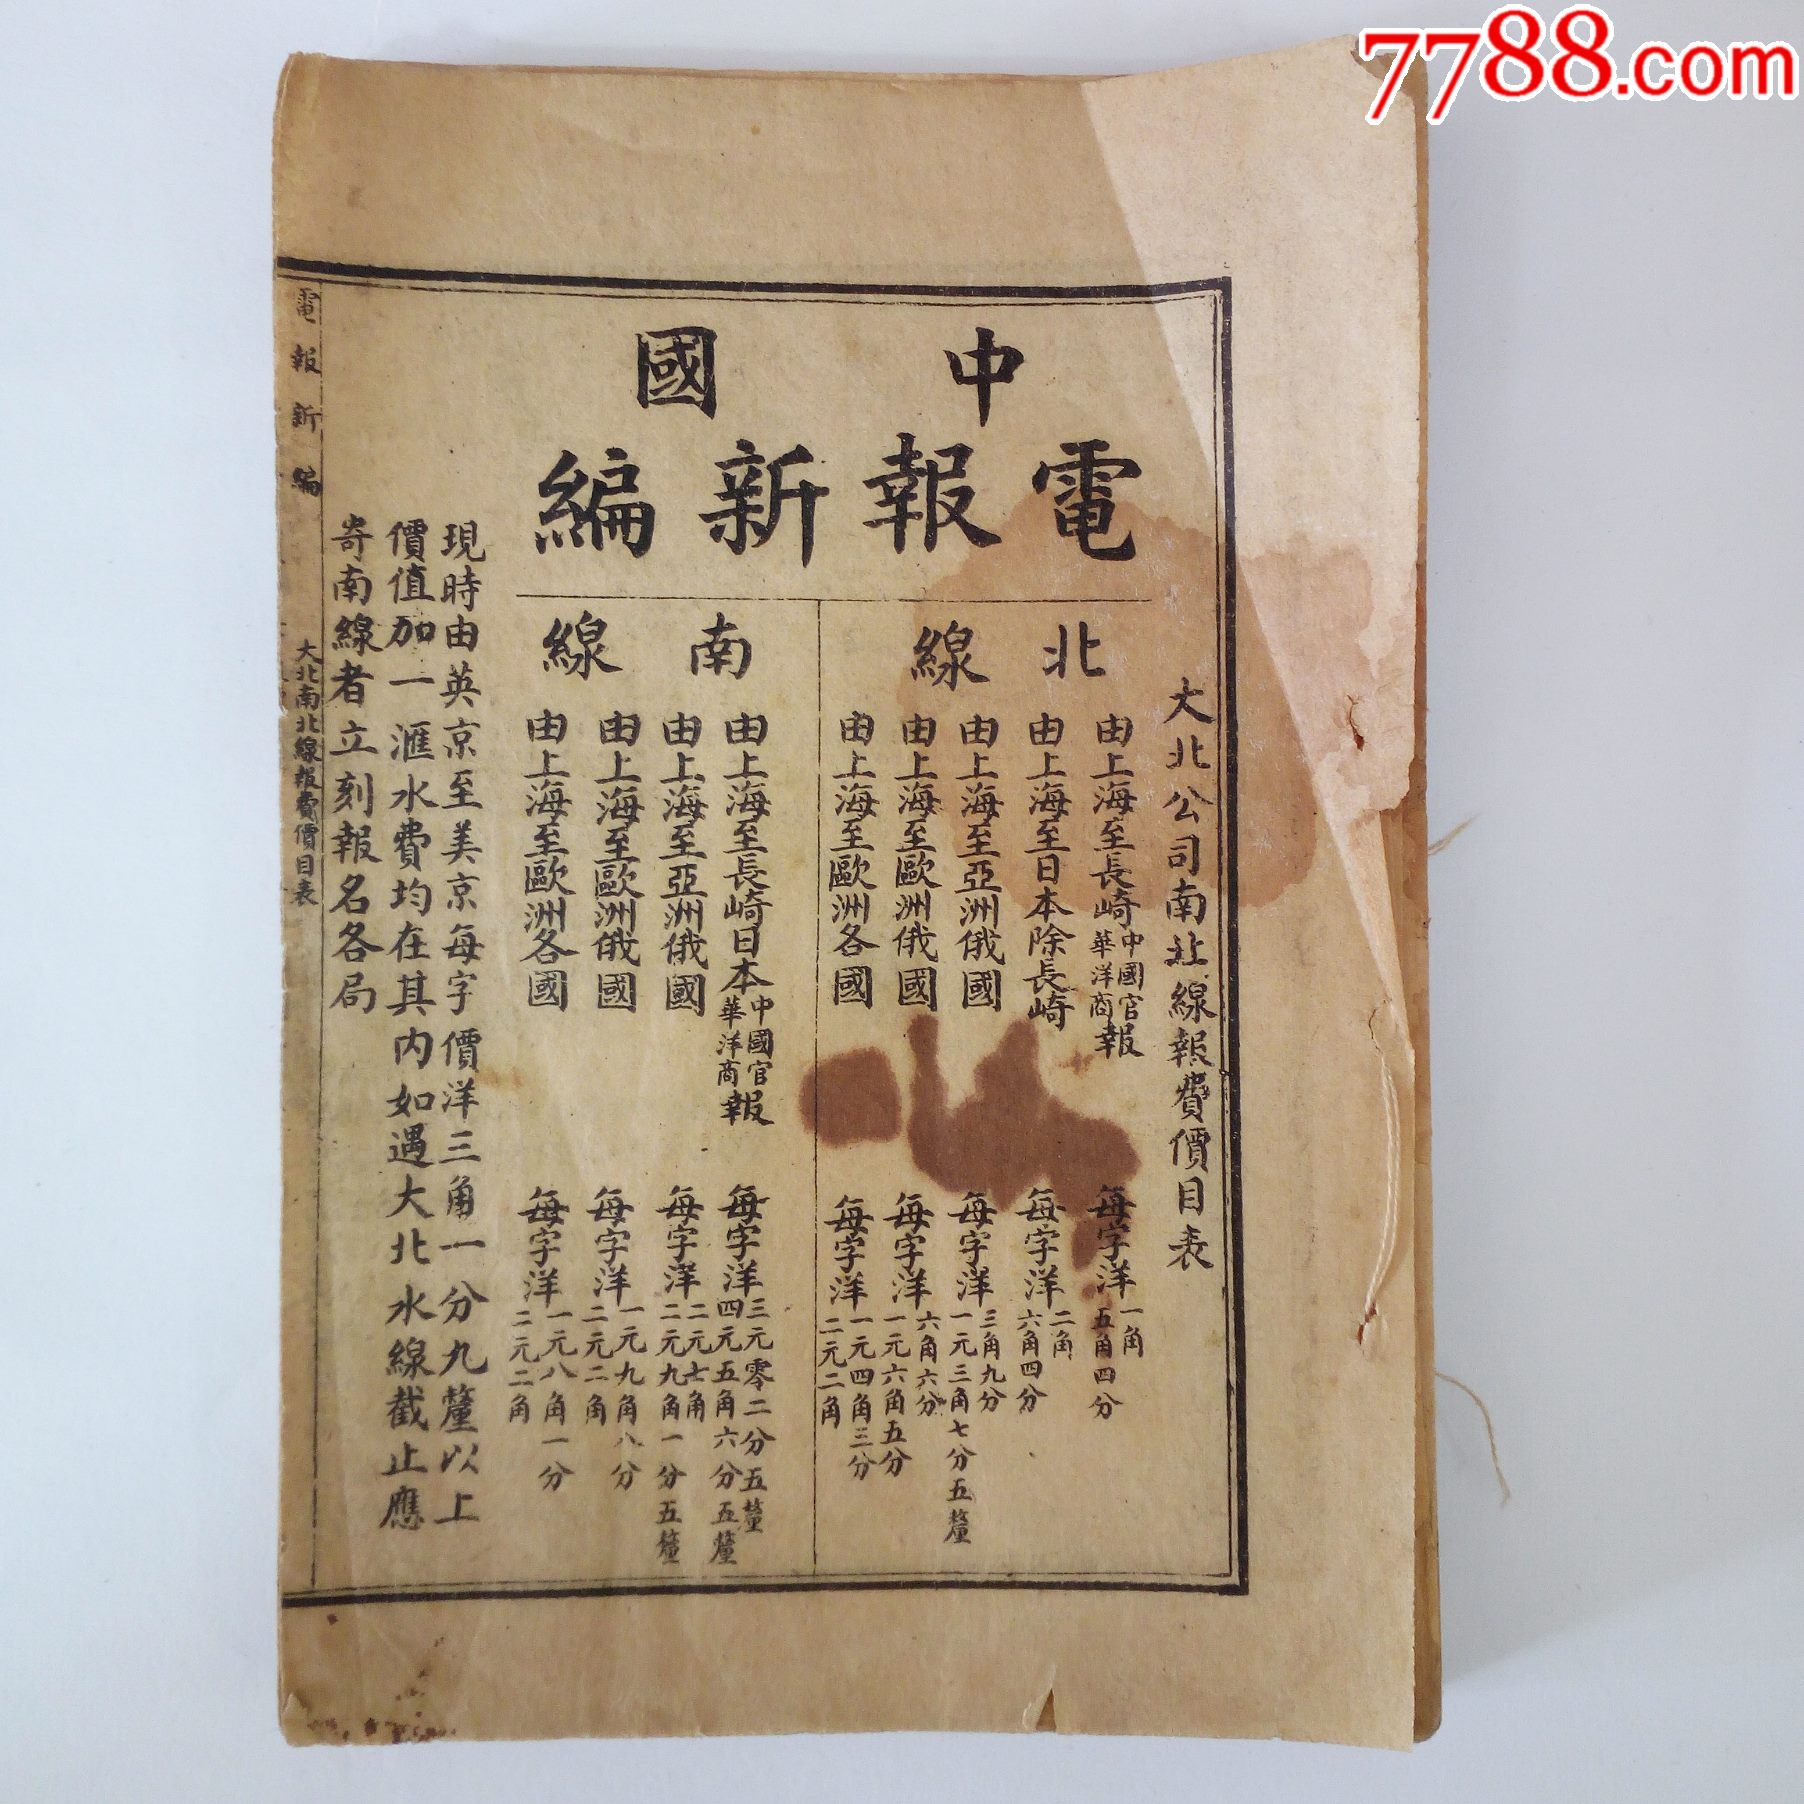 7788.com
中國
電報新編
大北公司南北線報費價目表
北線
由上海至長崎中國官華洋商報 每字洋一角五角四分
由上海至日本除長崎 每字洋二角六角四分
由上海至亞洲俄國 每字洋三角九分一元三角七分五釐
由上海至歐洲俄國 每字洋六角六分一元六角五分
由上海至歐洲各國 每字洋一元四角三分二元二角
南線
由上海至長崎日本中國官華洋商報 每字洋三元零二分五釐四元五角六分五釐
由上海至亞洲俄國 每字洋二元七角二元九角一分五釐
由上海至歐洲俄國 每字洋一元九角八分二元二角
由上海至歐洲各國 每字洋一元八角一分二元二角
現時由英京至美京每字價洋三角一分九釐以上
價值加一滙水費均在其內如遇大北水線截止應
寄南線者立刻報名各局
電報新編
大北南北線報費價目表